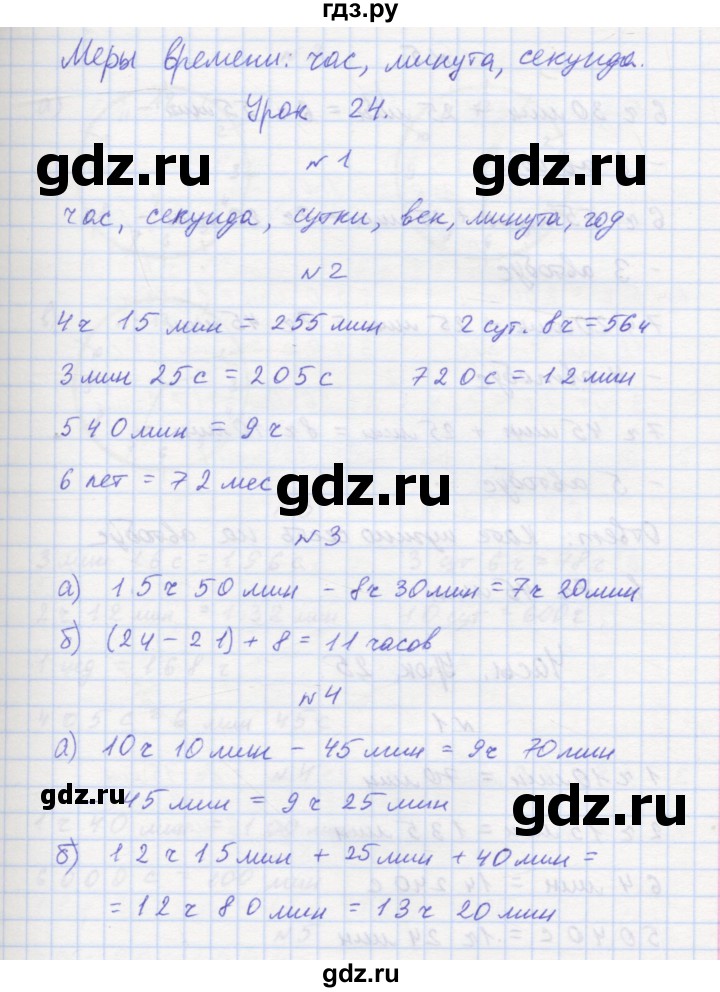 гдз.ру
Меры времени: час, минута, секунда.
Урок 24.
gdz.ru gdz.ru
№1
час, секунда, сутки, век, минута, год
№2
4 ч 15 мин = 255 мин 2 сут. 8 ч = 56 ч
3 мин 25 с = 205 с 720 с = 12 мин
540 мин = 9 ч
6 лет = 72 мес
gdz.ru
№3
а) 15 ч 50 мин - 8 ч 30 мин = 7 ч 20 мин
б) (24 - 21) + 8 = 11 часов
№4
а) 10 ч 10 мин - 45 мин = 9 ч 70 мин
gdz.ru 45 мин = 9 ч 25 мин gdz.ru
б) 12 ч 15 мин + 25 мин + 40 мин =
= 12 ч 80 мин = 13 ч 20 мин
gdz.ru